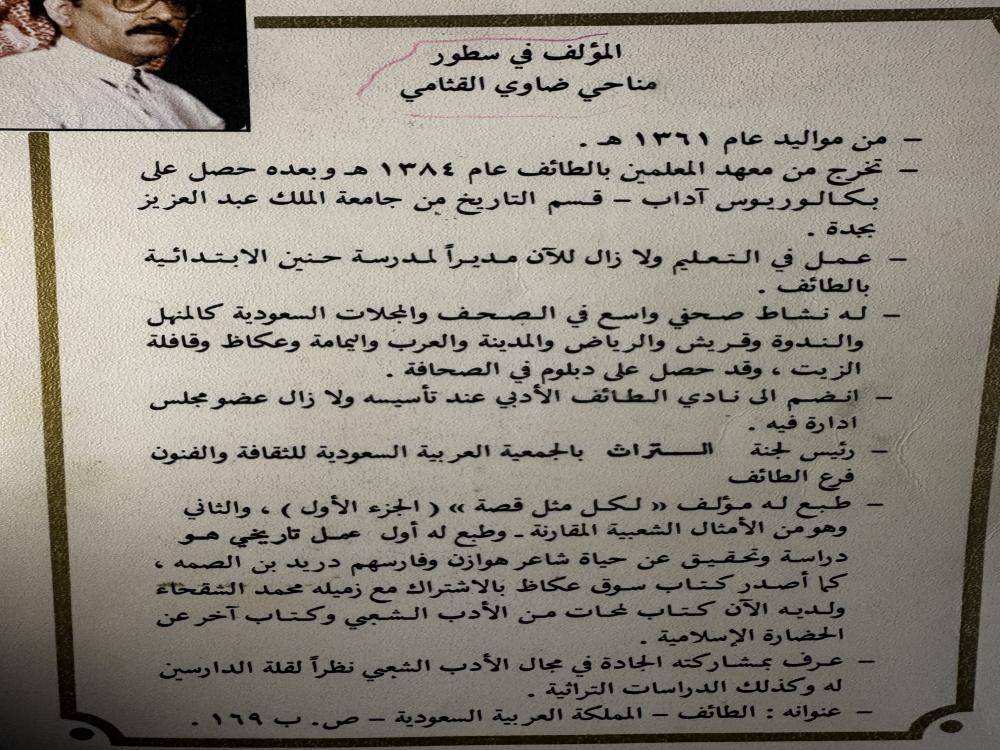 المؤلف في سطور
مناحي ضاوي القثامي
– من مواليد عام ١٣٦١ هـ .
– تخرج من معهد المعلمين بالطائف عام ١٣٨٤ هـ وبعده حصل على
بكالوريوس آداب – قسم التاريخ من جامعة الملك عبد العزيز
بجدة .
– عمل في التعليم ولا زال للآن مديراً لمدرسة حنين الابتدائية
بالطائف .
– له نشاط صحفي واسع في الصحف والمجلات السعودية كالمنهل
والندوة وقريش والرياض والمدينة والعرب واليمامة وعكاظ وقافلة
الزيت ، وقد حصل على دبلوم في الصحافة .
– انضم الى نادي الطائف الأدبي عند تأسيسه ولا زال عضو مجلس
ادارة فيه .
– رئيس لجنة التراث بالجمعية العربية السعودية للثقافة والفنون
فرع الطائف
– طبع له مؤلف « لكل مثل قصة » ( الجزء الأول ) ، والثاني
وهو من الأمثال الشعبية المقارنة ـ وطبع له أول عمل تاريخي هو
دراسة وتحقيق عن حياة شاعر هوازن وفارسهم دريد بن الصمه ،
كما أصدر كتاب سوق عكاظ بالاشتراك مع زميله محمد الشقحاء
ولديه الآن كتاب لمحات من الأدب الشعبي وكتاب آخر عن
الحضارة الإسلامية .
– عرف بمشاركته الجادة في مجال الأدب الشعبي نظراً لقلة الدارسين
له وكذلك الدراسات التراثية .
– عنوانه : الطائف – المملكة العربية السعودية – ص. ب ١٦٩ .